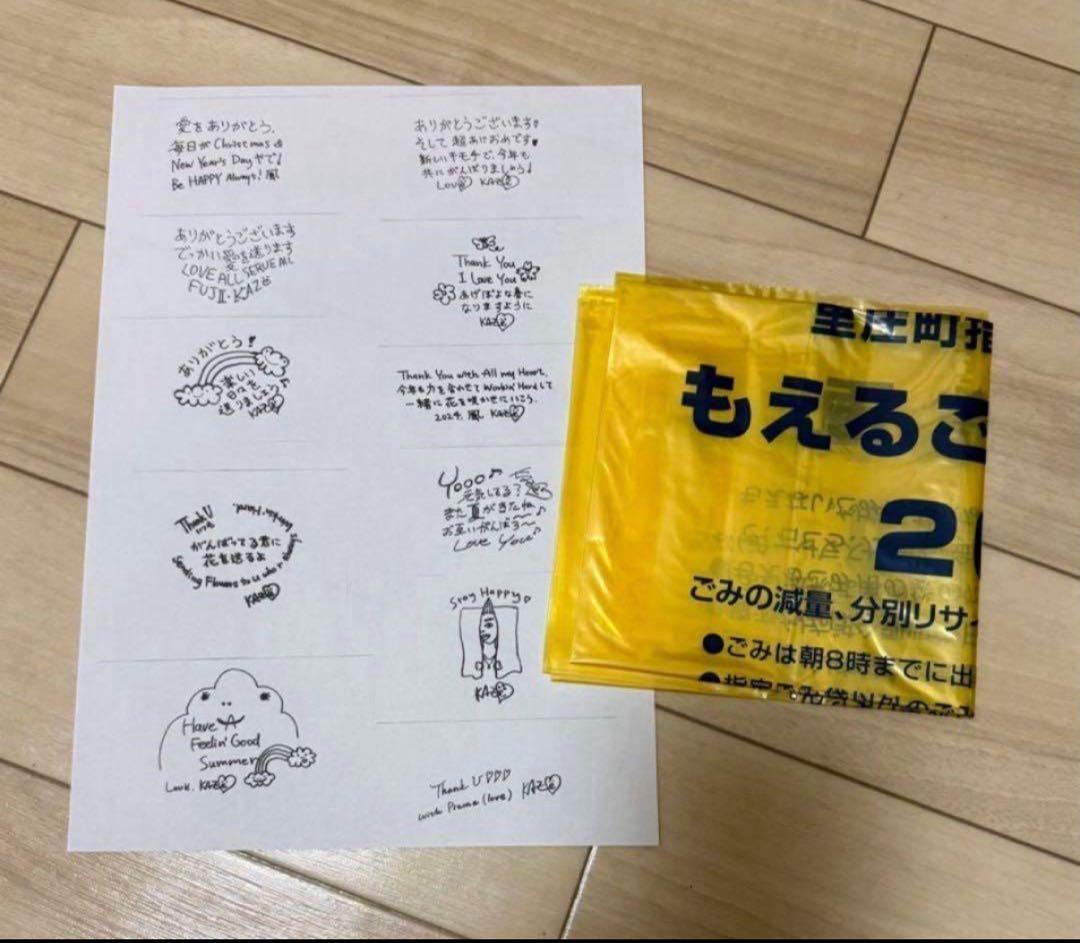 愛をありがとう。
毎日がChristmas &
New Year's Dayやで!
Be HAPPY Always! 風
ありがとうございます
でっかい愛を送ります
LOVE ALL SERVE ALL
FUJII・KAZE
ありがとう!
楽しい
日々を
送りましょう
KAZE
Thank U
がんばってる君に
花を送るよ
Sending Flowers to u who's
KAZE
Have A
Feelin' Good
Summer
Love. KAZE
ありがとうございます
そして超あけおめです
新しいキモチで、今年も
共にがんばりましょう!
Love KAZE
Thank You
I Love You
あげぽよな春に
なりますように
KAZE
Thank You with All my Heart.
今年も力を合わせて Workin' Hardして
一緒に花を咲かせにいこう。
2024. 風 KAZE
Yooo♪
元気してる?
また夏がきたね
お互いがんばろ〜♪
Love You♪
Stay Happy
KAZE
Thank U♡♡♡
with Prema (love) KAZE
里庄町指
もえるご
2
ごみの減量、分別リサイ
●ごみは朝8時までに出
●指定ごみ袋以外のごみ